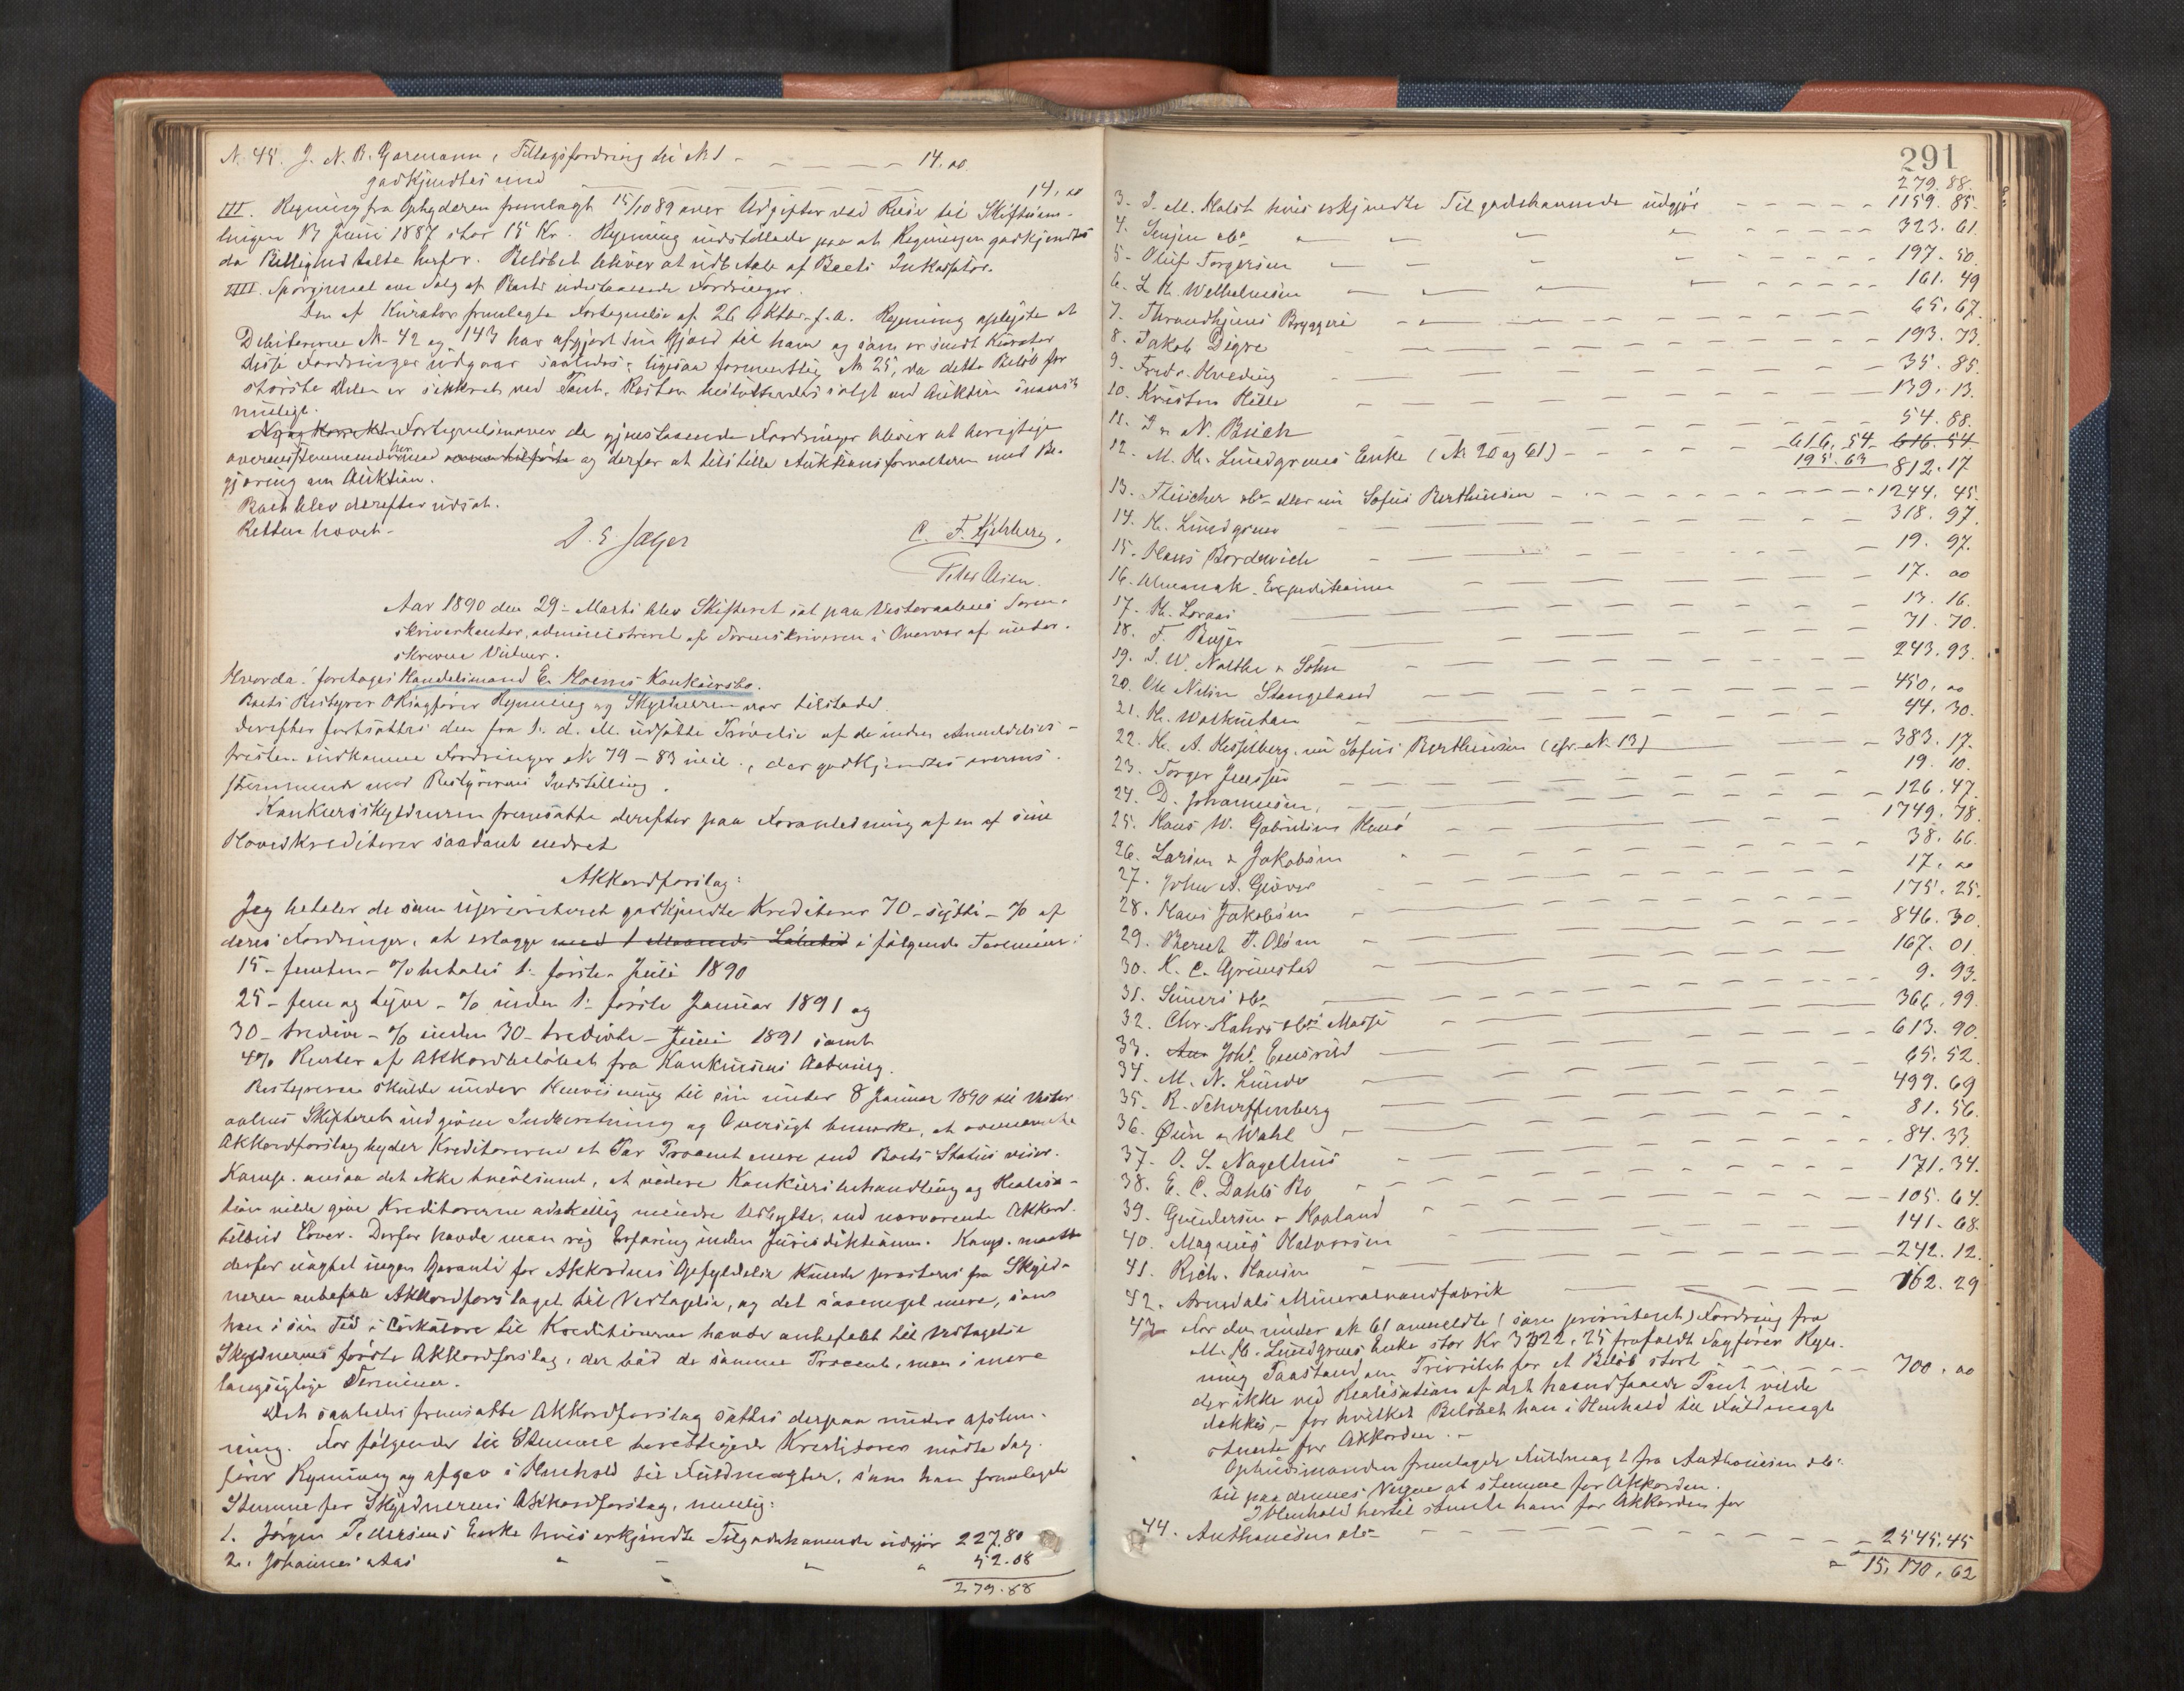 N. 45. J. N. B. Garmann, Tillægsfordring til N 1 - 14.00
godkjendtes med 14.00
III. Regning fra Ophyderen fremlagt 15/10 89 over Udgifter ved Reise til Skiftesam-
lingen 13 Juni 1887 stor 15 Kr. Rynning indstillede paa at Regningen godkjendtes
da Billighed talte herfor. Beløbet bliver at udbetale af Boets Inkassator.
IIII. Spørgsmaal om Salg af Boets udestaaende Fordringer.
Den af Kurator fremlagte Fortegnelse af 26 Oktbr. f. A. Rynning oplyste at
Debitorerne N- 42 og 143 har afgjort sin Gjæld til ham og som er sendt Kurator
disse Fordringer udgaar saaledes; ligesaa formentlig N 25, da dette Beløb for
største Delen er sikkret ved Pant. Resten besluttedes solgt ved Auktion snarest
muligt.
Ny og korrekt Fortegnelse over de gjenstaaende Fordringer bliver at berigtige
overensstemmende med og derfor at tilstille Auktionsforvalteren med Be-
gjæring om Auktion.
Boet blev derefter udsat.
Retten hævet -
D. S. Jæger C. F. Kjelsberg.
Peter Olsen.
Aar 1890 den 29- Marts blev Skifteret sat paa Vesteraalens Soren-
skriverkontor, administreret af Sorenskriveren i Overvær af under-
skrevne Vidner.
Hvorda: foretoges Handelsmand E. Moens Konkursbo.
Boets Bestyrer OR Sagfører Rynning og Skyldneren var tilstede.
Derefter fortsattes den fra 1. d. M. udsatte Prøvelse af de inden Anmeldelses-
fristen indkomne Fordringer N 79 - 83 incl., der godkjendtes overens-
stemmende med Bestyrerens Indstilling.
Konkursskyldneren fremsatte derefter paa Foranledning af en af sine
Hovedkreditorer saadant endret
Akkordforslag:
Jeg betaler de som uprioriteret godkjendte Kreditorer 70 - sytti - % af
deres Fordringer, at erlægge med 1 Maaneds i følgende Terminer:
15 - femten - % betales 1- første- Juli 1890
25 - fem og tyve - % inden 1- første Januar 1891 og
30 - tredive - % inden 30 - tredivte - Juni 1891 samt
4% Renter af Akkordbeløbet fra Konkursens Aabning.
Bestyreren skulde under Henvisning til sin under 8 Januar 1890 til Vester-
aalens Skifteret indgivne Indberetning og Oversigt bemærke, at ovennævnte
Akkordforslag byder Kreditorerne et Par Procent mere end Boets Status viser.
Komp. ansaa det ikke tvivlsomt, at videre Konkursbehandling og Realisa-
tion vilde give Kreditorerne adskillig mindre Udbytte, end nærværende Akkord-
tilbud lover. Derfor havde man rig Erfaring inden Jurisdiktionen. Komp. maatte
derfor uagtet ingen Garanti for Akkordens Opfyldelse kunde præsteres fra Skyld-
neren anbefale Akkordforslaget til Vedtagelse, og det saameget mere, som
han i sin Tid i Cirkulære til Kreditorerne havde anbefalet til Vedtagelse
Skyldnerens første Akkordforslag, der bød de samme Procent, men i mere
langsigtige Terminer.
Det saaledes fremsatte Akkordforslag sattes derpaa under Afstem-
ning. For følgende til Stemme berettigede Kreditorer mødte Sag-
fører Rynning og afgav i Henhold til Fuldmagter, som han fremlagde
Stemme for Skyldnerens Akkordforslag, nemlig:
1. Jørgen Pedersens Enke hvis erkjendte Tilgodehavende udgjør 227.80
2. Johannes Aas 52.08
279.88
291
279.88.
3. J. M. Holst hvis erkjendte Tilgodehavende udgjør 1159.85.
4. Jenssen & Co 323.61
5. Oluf Torgersen 197.50
6. L. H. Wilhelmsen 161.49
7. Throndhjems Bryggeri 65.67.
8. Jakob Digre 193.73
9. Fredr. Kveding 35.85.
10. Kristen Hille 139.13.
11. J. N. Buch 54.88.
12. M. H. Lundgrens Enke (N. 20 og 61) 616.54 616.54
195.63 812.17
13. Fleischer & Co eller nu Sofus Berthinsen 1244.45.
14. H. Lundgren 318.97.
15. Hans Bordewich 19.97.
16. Almanak-Expeditionen 17.00
17. H. Loraas 13.16.
18. F. Beyer 71.70.
19. J. W. Nolthe & Sohn 243.93.
20. Ole Nilsen Stangeland 450.00
21. H. Wolkentan 44.30.
22. H. A. Hesselberg nu Sofus Berthinsen (cfr. N. 13) 383.17.
23. Torger Jenssen 19.10.
24. D. Johannesen 126.47.
25. Hans W. Gabrielsen Hans' 1749.78.
26. Larsen & Jakobsen 38.66.
27. John A. Giæver 17.00
28. Hans Jakobsen 175.25.
29. Bernt T. Olsen 846.30
30. K. C. Grimstad 167.01
31. Simers & Co 9.93.
32. Chr. Kahrs & Co's Masse 366.99.
33. Johs. Ensrud 613.90
34. M. N. Lunde 65.52
35. R. Scheffenberg 499.69
36. Øien & Wahl 81.56.
37. O. S. Nagelhus 84.33
38. E. C. Dahls Bo 171.34.
39. Gundersen & Hovland 105.64.
40. Magnus Halvorsen 141.68.
41. Rich. Hansen 242.12.
42. Arendals Mineralvandfabrik 162.29
43. For den under N 61 anmeldte (som prioriteret) Fordring fra
M. H. Lundgrens Enke stor Kr 3722.25 frafaldt Sagfører Ryn-
ning Paastand om Prioritet for et Beløb stort 700.00
der ikke ved Realisation af det haandfaaede Pant vilde
dækkes, - for hvilket Beløbet han i Henhold til Fuldmagt
stemte for Akkorden. -
Ophudsmanden fremlagde Fuldmagt fra Anthonisen & Co
til paa dennes Vegne at stemme for Akkorden.
I Henhold hertil stemte han for Akkorden for
44. Anthonisen & Co 2545.45
15,170.62